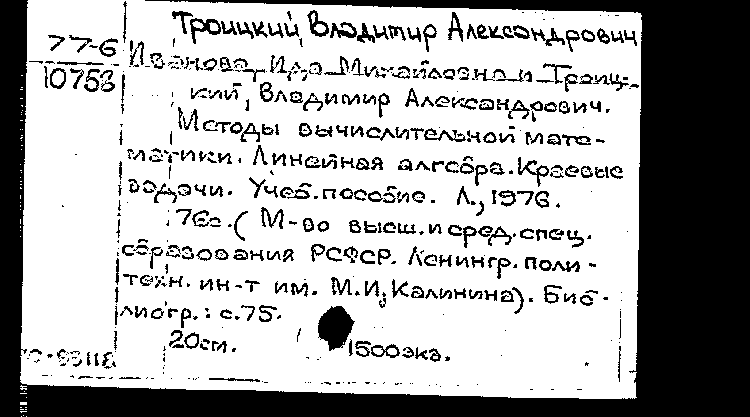 Троицкий, Владимир Александрович
77-6
10753
Иванова, Ида Михайловна и Троиц-
кий, Владимир Александрович.
Методы вычислительной мате-
матики. Линейная алгебра. Краевые
задачи. Учеб. пособие. Л., 1976.
76с. (М-во высш. и сред. спец.
образования РСФСР. Ленингр. поли-
техн. ин-т им. М.И. Калинина). Биб-
лиогр.: с. 75.
20см. 1500экз.